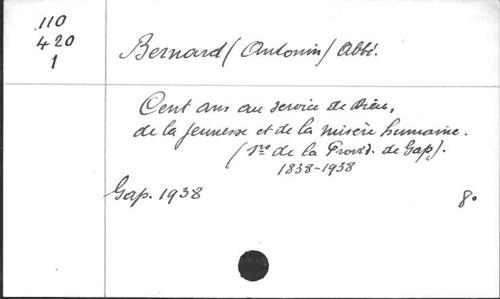 110
420
1
Bernard (Antonin) Abbé.
Cent ans au service de Dieu,
de la jeunesse et de la misère humaine.
(Srs de la Provid. de Gap).
1838-1938
Gap. 1938
8°